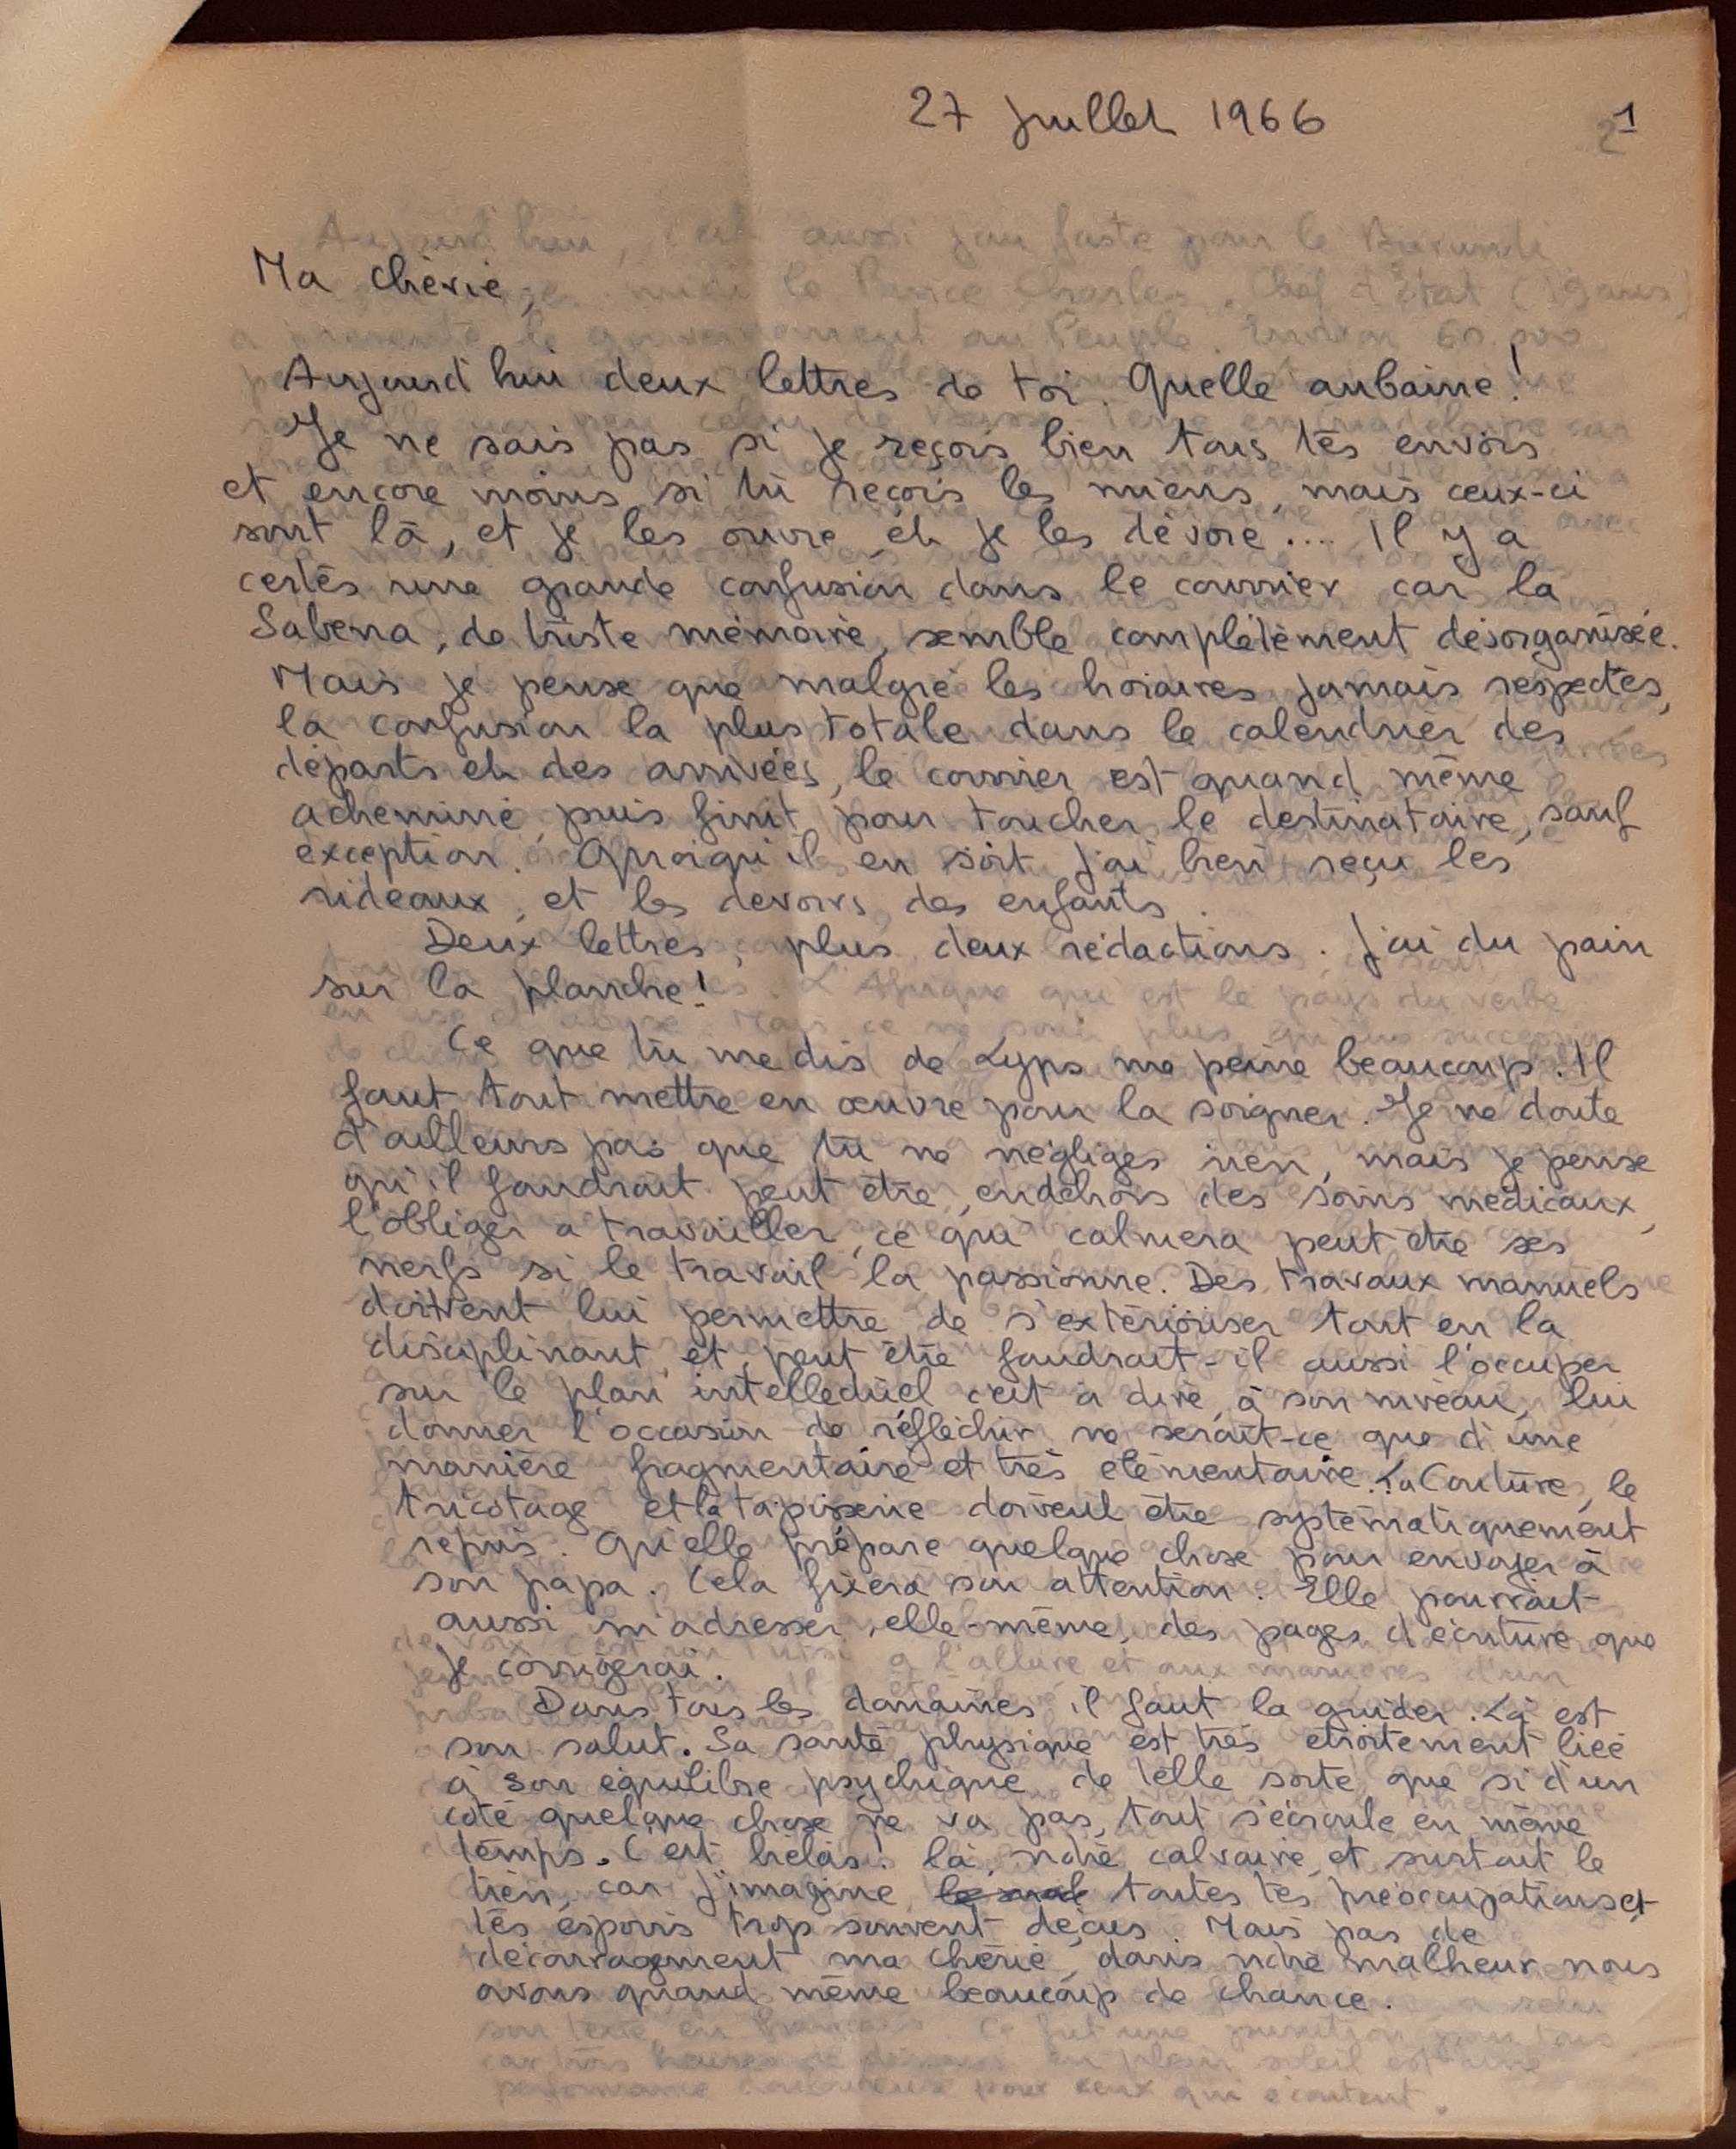 27 juillet 1966
1
Ma chérie,
Aujourd'hui deux lettres de toi. Quelle aubaine!
Je ne sais pas si je reçois bien tous tes envois
et encore moins si tu reçois les miens, mais ceux-ci
sont là, et je les ouvre et je les dévore.... Il y a
certes une grande confusion dans le courrier car la
Sabena, de triste mémoire, semble complètement désorganisée.
Mais je pense que malgré les horaires jamais respectés,
la confusion la plus totale dans le calendrier des
départs et des arrivées, le courrier est quand même
acheminé, puis finit pour toucher le destinataire, sauf
exception. Quoiqu'il en soit j'ai bien reçu les
rideaux, et les devoirs des enfants.
Deux lettres, plus deux rédactions. J'ai du pain
sur la planche!
Ce que tu me dis de Lyps me peine beaucoup. Il
faut tout mettre en œuvre pour la soigner. Je ne doute
d'ailleurs pas que tu ne négliges rien, mais je pense
qu'il faudrait peut être, endehors des soins médicaux,
l'obliger a travailler, ce qui calmera peut être ses
nerfs si le travail la passionne. Des travaux manuels
doivent lui permettre de s'extérioriser tout en la
disciplinant, et peut être faudrait-il aussi l'occuper
sur le plan intellectuel c'est à dire, à son niveau, lui
donner l'occasion de réfléchir ne serait-ce que d'une
manière fragmentaire et très élémentaire. La Couture, le
tricotage et la tapisserie doivent être systématiquement
repris. Qu'elle prépare quelque chose pour envoyer à
son papa. Cela fixera son attention. Elle pourrait
aussi m'adresser, elle-même, des pages d'écriture que
je corrigerai.
Dans tous les domaines il faut la guider. Là est
son salut. Sa santé physique est très étroitement liée
à son équilibre psychique de telle sorte que si d'un
coté quelque chose ne va pas, tout s'écroule en même
temps. C'est hélas! là, notre calvaire, et surtout le
tien, car j'imagine toutes tes préoccupations et
tes espoirs trop souvent déçus. Mais pas de
découragement ma chérie, dans notre malheur nous
avons quand même beaucoup de chance.